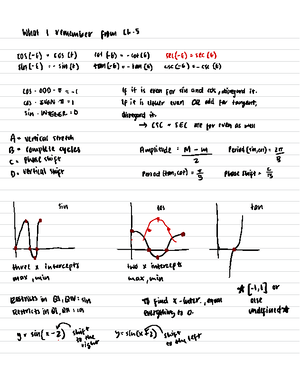 What I remember from Ch. 5
cos(-t) = cos(t) cot(-t) = -cot(t) sec(-t) = sec(t)
sin(-t) = -sin(t) tan(-t) = -tan(t) csc(-t) = -csc(t)
cos · ODD · π = -1 If it is even for sin and cos, disregard it.
cos · EVEN · π = 1 If it is clower even OR odd for tangent,
sin · INTEGER = 0 disregard it.
→ CSC + SEC are for even as well
A = vertical stretch
B = complete cycles Amplitude: M - m / 2 Period (sin, cos): 2π / B
C = Phase shift
D = vertical shift Period (tan, cot) = π / B Phase shift = C / B
sin cos tan
three x intercepts two x intercepts
max, min max, min
★ [-1, 1] or
Restricts in Q1, Q4: sin To find x-inter., equal else
Restricts in Q1, Q2: cos everything to 0. undefined ★
y = sin(x - 2) shift to the right y = sin(x + 2) shift to the left